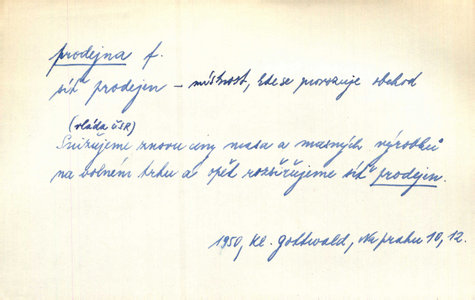 prodejna f.
síť prodejen – místnost, kde se provozuje obchod
(vláda ČSR)
Snižujeme znovu ceny masa a masných výrobků
na volném trhu a opět rozšiřujeme síť prodejen.
1950, Kl. Gottwald, Na prahu 10, 12.